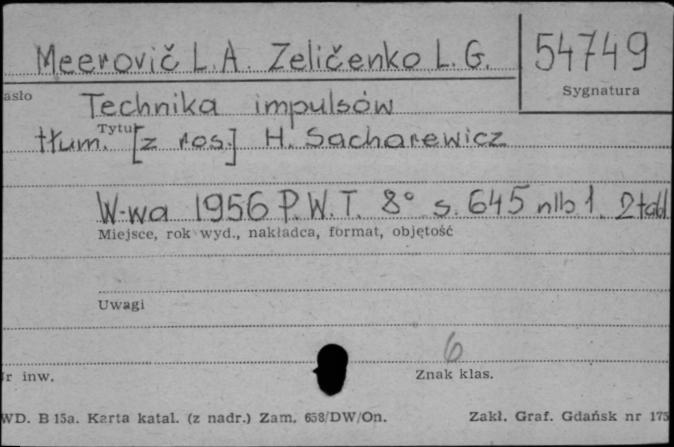 Meerovič L.A. Zeličenko L.G.
54749
Sygnatura
asło
Technika impulsów
Tytuł
tłum. [z ros.] H. Sacharewicz
W-wa 1956 P.W.T. 8° s. 645 nlb 1. 2 tabl
Miejsce, rok wyd., nakładca, format, objętość
Uwagi
6
r inw.
Znak klas.
WD. B 15a. Karta katal. (z nadr.) Zam. 658/DW/On.
Zakł. Graf. Gdańsk nr 175